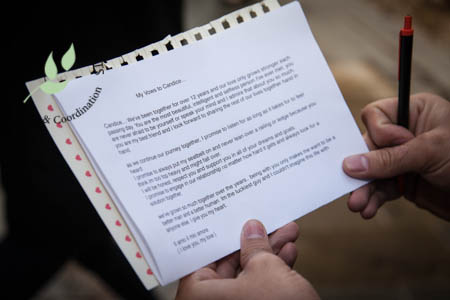 & Coordination
My Vows to Candice...
Candice... We've been together for over 12 years and our love only grows stronger each
passing day. You are the most beautiful, intelligent and selfless person I've ever met, you
are never afraid to be yourself or speak your mind and I admire that about you so much.
you are my best friend and I look forward to sharing the rest of our lives together hand in
hand.
as we continue our journey together, I promise to listen for as long as it takes for to feel
heard
I promise to always put my seatbelt on and never lean over a railing or ledge because you
think im too top heavy and might fall over.
I will be honest, respect you and support you in all of your dreams and goals.
I promise to engage in our relationship no matter how hard it gets and always look for a
solution together.
we've grown so much together over the years, being with you only makes me want to be a
better man and a better human. Im the luckiest guy and I couldn't imagine this life with
anyone else. I give you my heart.
ti amo il mio amore
( I love you, my love )